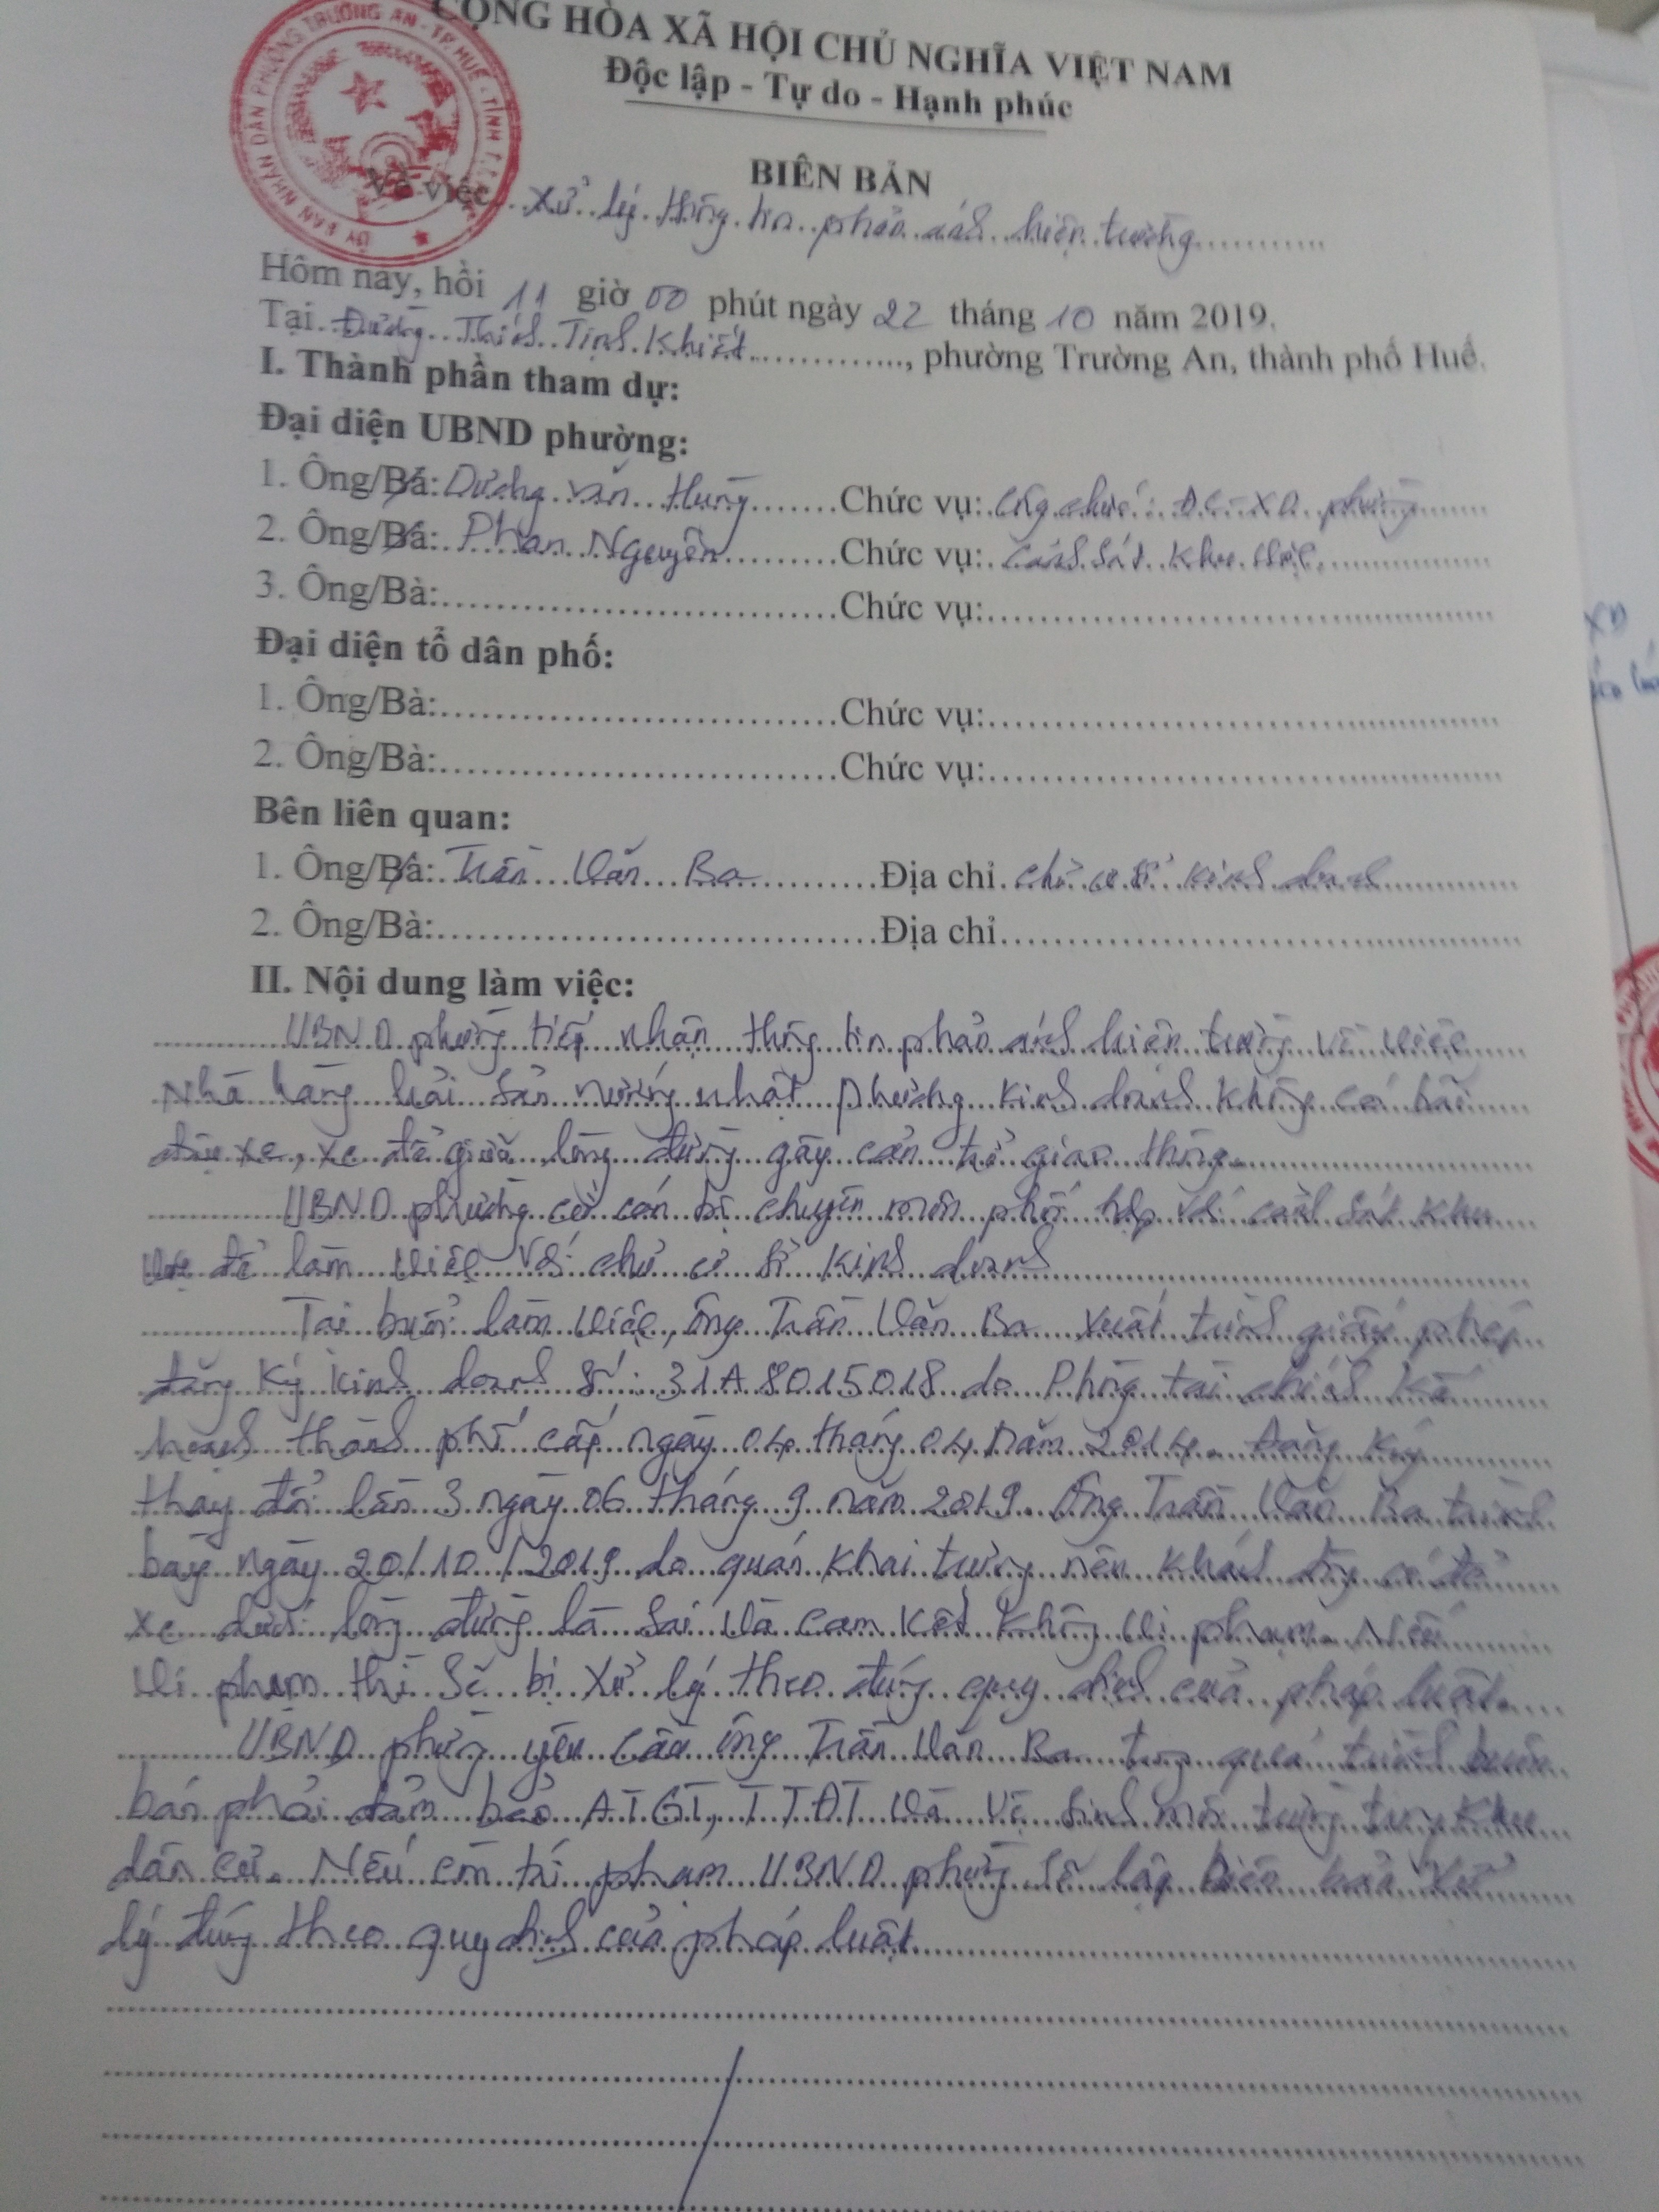 CỘNG HÒA XÃ HỘI CHỦ NGHĨA VIỆT NAM
Độc lập - Tự do - Hạnh phúc
ỦY BAN NHÂN DÂN PHƯỜNG TRƯỜNG AN - TP. HUẾ - TỈNH
BIÊN BẢN
Về việc: Xử lý thông tin phản ánh hiện trường
Hôm nay, hồi 11 giờ 00 phút ngày 22 tháng 10 năm 2019.
Tại Đường Thích Tịnh Khiết, phường Trường An, thành phố Huế.
I. Thành phần tham dự:
Đại diện UBND phường:
1. Ông/Bà: Dương Văn Hùng Chức vụ: Công chức ĐC-XD phường
2. Ông/Bà: Phan Nguyên Chức vụ: Cảnh sát khu vực
3. Ông/Bà: Chức vụ:
Đại diện tổ dân phố:
1. Ông/Bà: Chức vụ:
2. Ông/Bà: Chức vụ:
Bên liên quan:
1. Ông/Bà: Trần Văn Ba Địa chỉ chủ cơ sở kinh doanh
2. Ông/Bà: Địa chỉ
II. Nội dung làm việc:
UBND phường tiếp nhận thông tin phản ánh hiện trường về việc
Nhà hàng hải sản nướng nhật phương kinh doanh không có bãi
đậu xe, xe để giữa lòng đường gây cản trở giao thông.
UBND phường cử cán bộ chuyên môn phối hợp với cảnh sát khu
vực để làm việc với chủ cơ sở kinh doanh
Tại buổi làm việc, ông Trần Văn Ba xuất trình giấy phép
đăng ký kinh doanh số: 31A8015018 do Phòng tài chính kế
hoạch thành phố cấp ngày 04 tháng 04 năm 2014. đăng ký
thay đổi lần 3 ngày 06 tháng 9 năm 2019. Ông Trần Văn Ba trình
bày ngày 20/10/2019 do quán khai trương nên khách đông có để
xe dưới lòng đường là sai và cam kết không vi phạm. Nếu
vi phạm thì sẽ bị xử lý theo đúng quy định của pháp luật.
UBND phường yêu cầu ông Trần Văn Ba trong quá trình buôn
bán phải đảm bảo ATGT, TTĐT và vệ sinh môi trường trong khu
dân cư. Nếu còn tái phạm UBND phường sẽ lập biên bản xử
lý đúng theo quy định của pháp luật.
XD